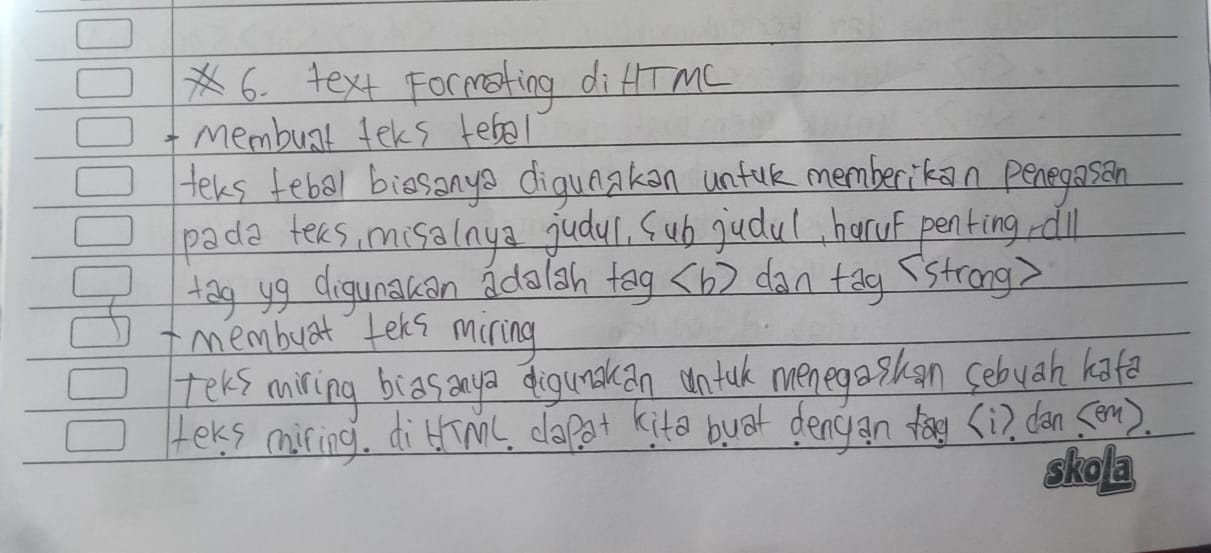 * 6. text Formating di HTML
+ membuat teks tebal
teks tebal biasanya digunakan untuk memberikan penegasan
pada teks, misalnya judul, sub judul, huruf penting, dll
tag yg digunakan adalah tag <b> dan tag <strong>
+ membuat teks miring
teks miring biasanya digunakan untuk menegaskan sebuah kata
teks miring. di HTML dapat kita buat dengan tag <i> dan <em>.
skola